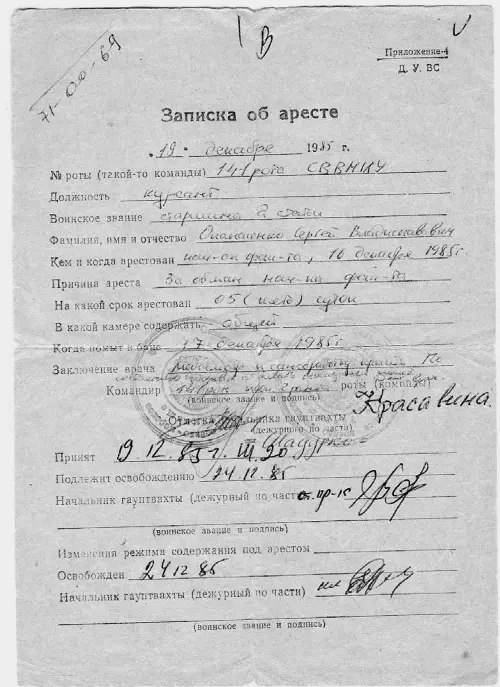 71-00-69
В
Приложение-4
Д. У. ВС
Записка об аресте
19 декабря 1985 г.
№ роты (такой-то команды) 141 рота СВВМИУ
Должность курсант
Воинское звание старшина 2 статьи
Фамилия, имя и отчество Сергей Владиславович
Кем и когда арестован нач-ом фак-та, 16 декабря 1985г
Причина ареста За обман нач-ка фак-та
На какой срок арестован 05 (пять) суток
В какой камере содержать общей
Когда помыт в бане 17 декабря 1985г
Заключение врача
Командир роты (команды)
(воинское звание и подпись)
Красавина.
Отметка начальника гауптвахты
(дежурного по части)
Принят 19.12.85г.
Подлежит освобождению 24.12.85
Начальник гауптвахты (дежурный по части) ст. пр-к
(воинское звание и подпись)
Изменения режима содержания под арестом
Освобожден 24 12 85
Начальник гауптвахты (дежурный по части)
(воинское звание и подпись)